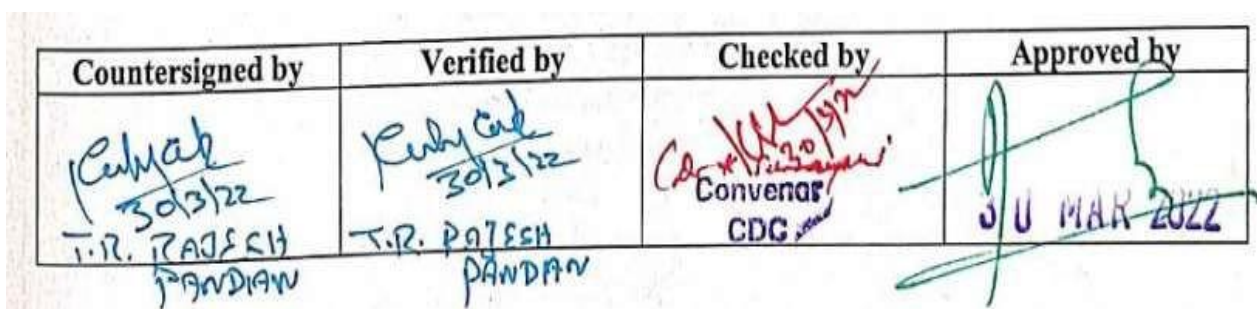 Countersigned by
Verified by
Checked by
Approved by
30/3/22
T.R. RAJESH
PANDIAN
30/3/22
T.R. RAJESH
PANDIAN
30/3/22
Convenor
CDC
30 MAR 2022